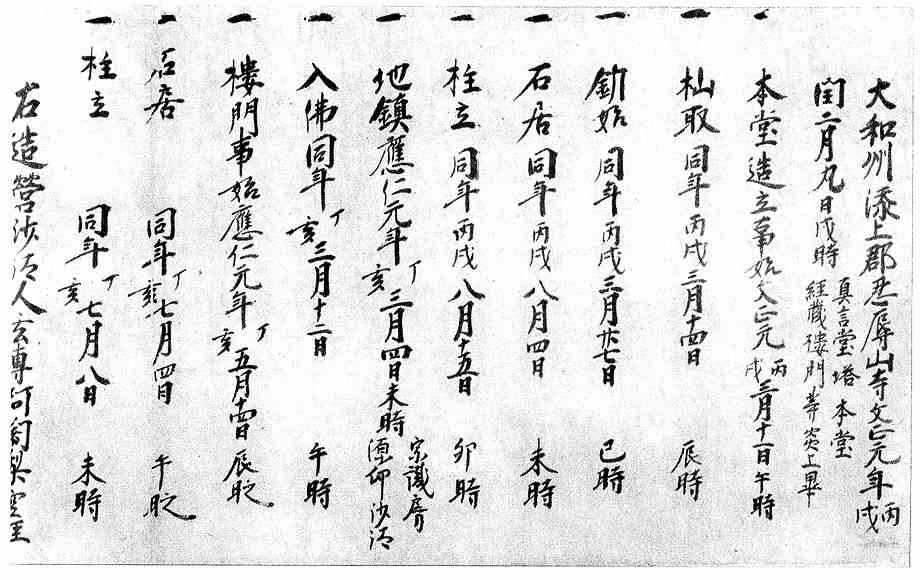 大和州添上郡忍辱山寺文正元年丙戌
閏二月九日戌時真言堂塔本堂
経蔵楼門等炎上畢
一本堂造立事始文正元丙戌三月十一日午時
一杣取同年丙戌三月十四日辰時
一釿始同年丙戌三月廿七日巳時
一石居同年丙戌八月四日未時
一柱立同年丙戌八月十五日卯時
一地鎮應仁元年丁亥三月四日未時宗識房
源仰沙汰
一入佛同年丁亥三月十二日午時
一楼門事始應仁元年丁亥五月十四日辰時
一石居同年丁亥七月四日午時
一柱立同年丁亥七月八日未時
右造營沙汰人玄專阿闍梨